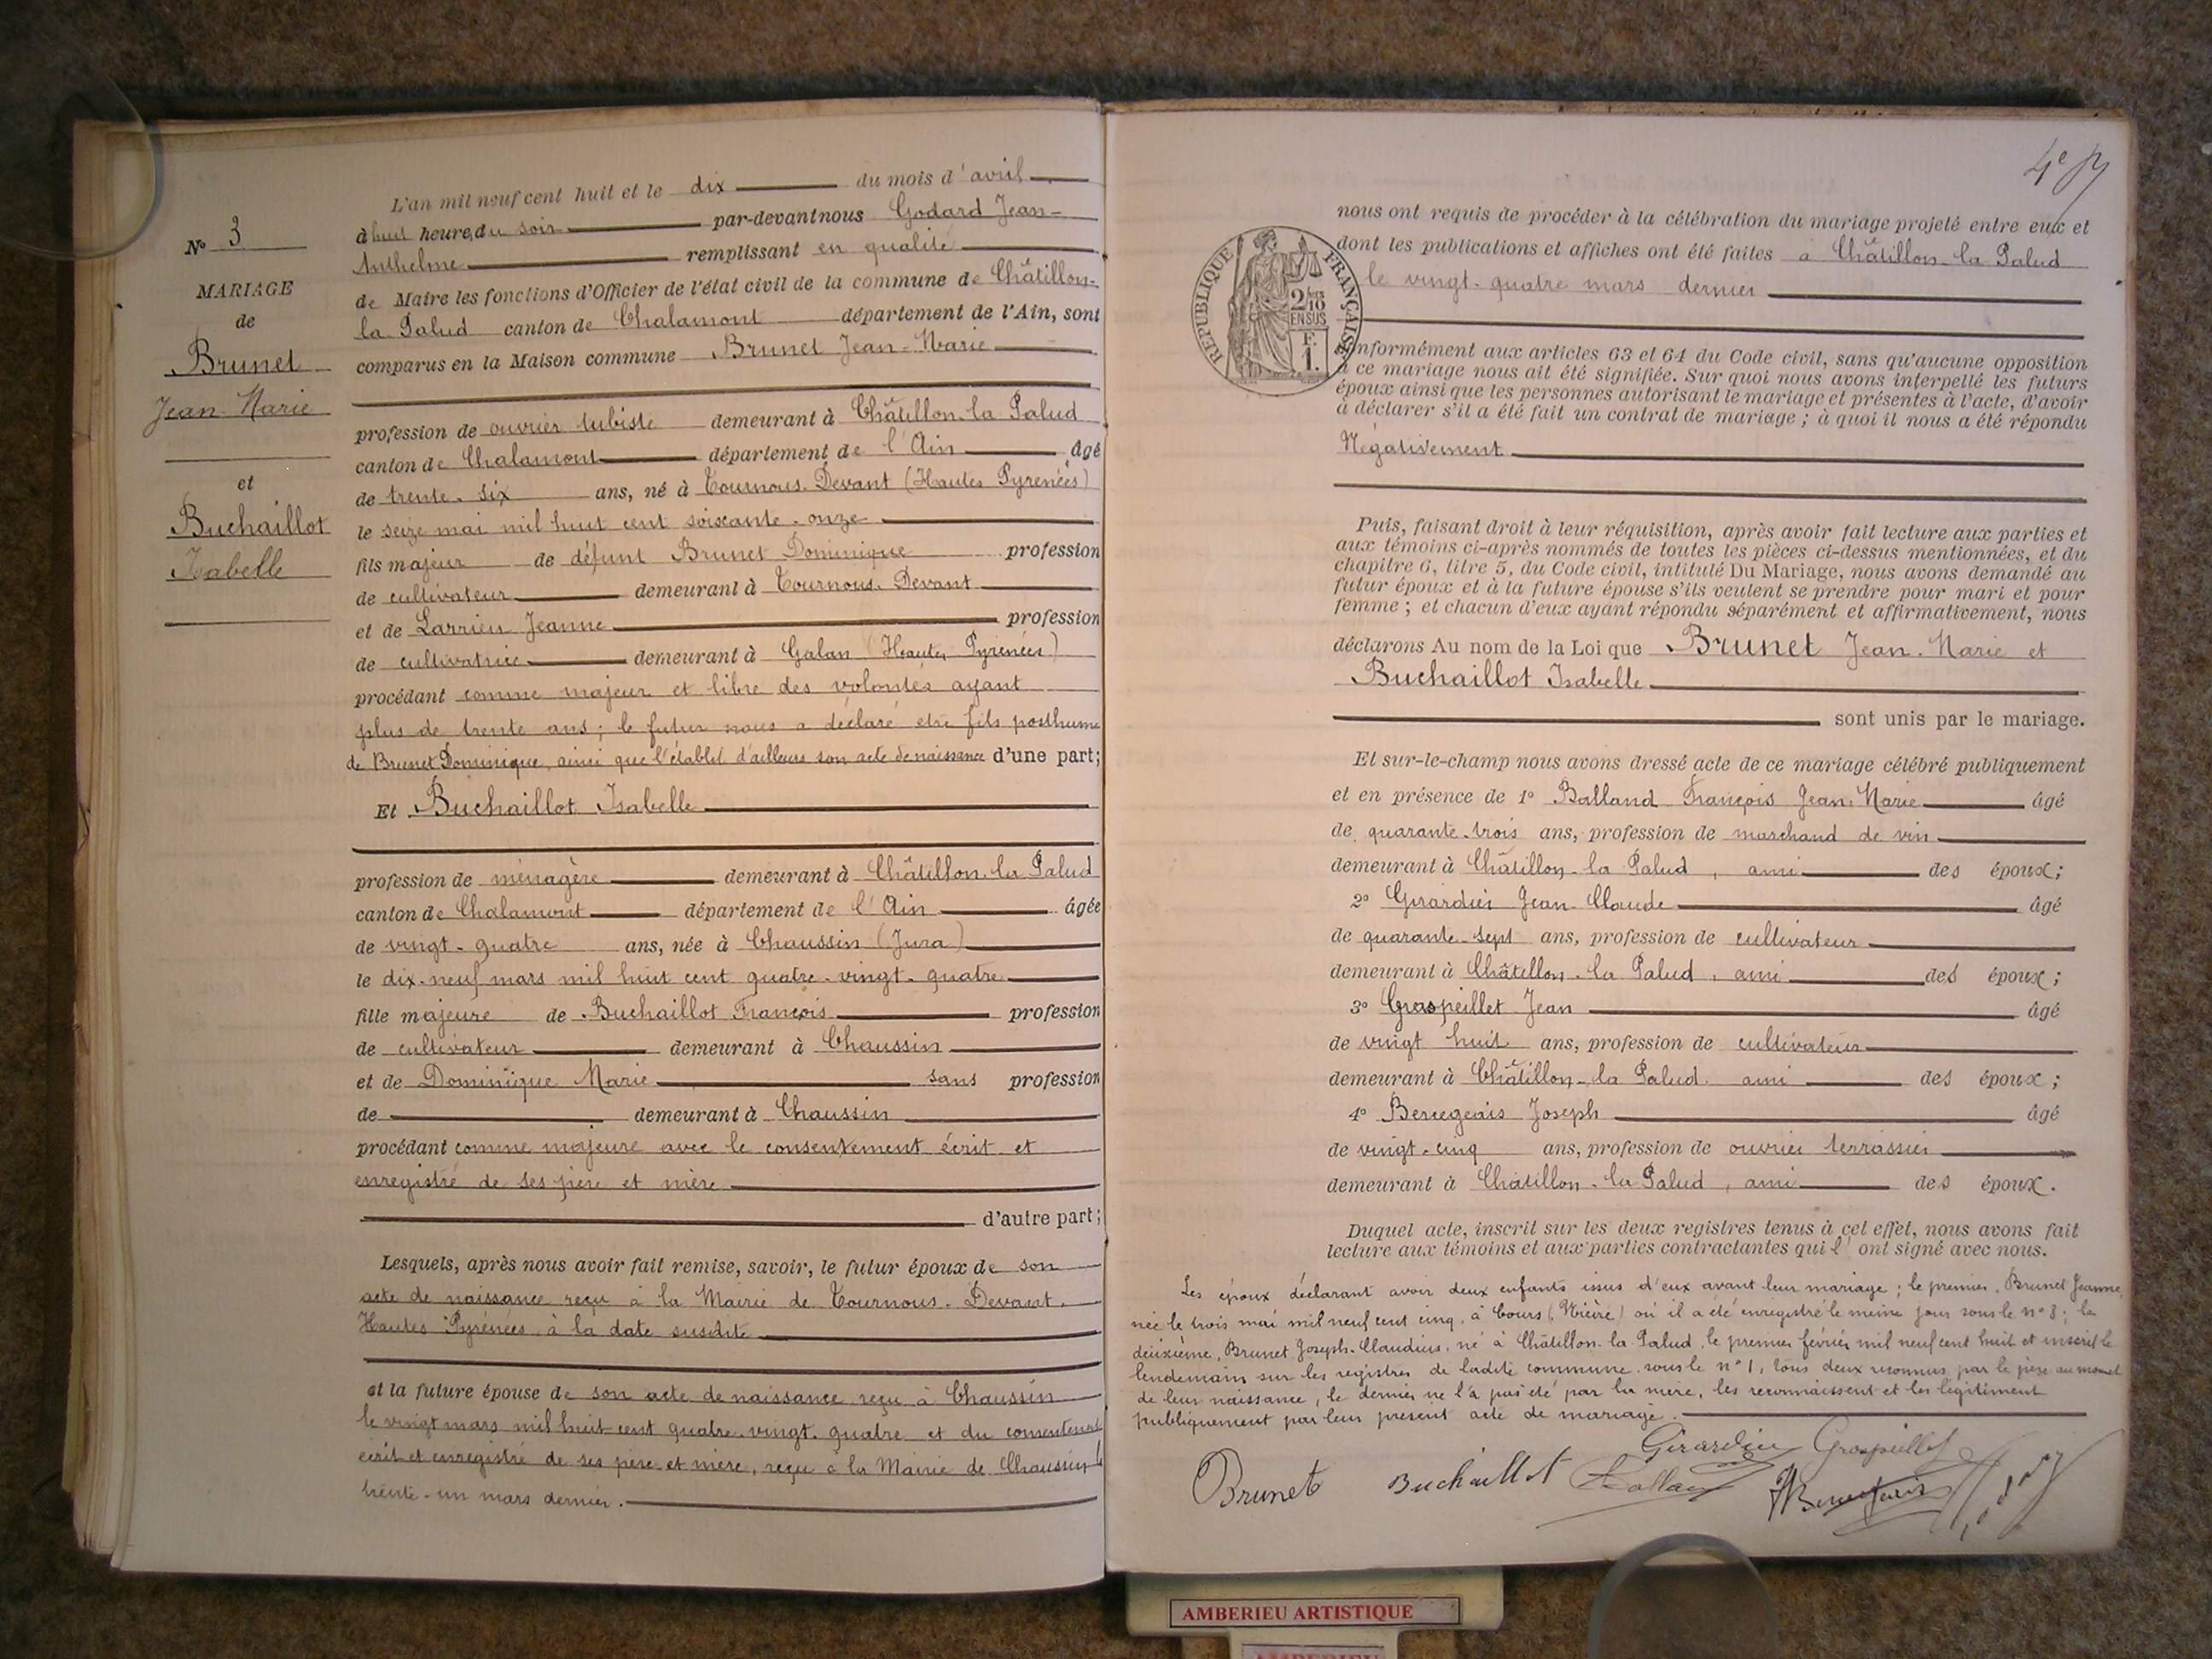 N° 3
MARIAGE
de
Brunet
Jean-Marie
et
Buchaillot
Isabelle
L'an mil neuf cent huit et le dix du mois d'avril
à huit heures du soir par-devant nous Godard Jean-
Anthelme remplissant en qualité
de Maire les fonctions d'Officier de l'état civil de la commune de Châtillon-
la-Palud canton de Chalamont département de l'Ain, sont
comparus en la Maison commune Brunet Jean-Marie
profession de ouvrier tubiste demeurant à Châtillon-la-Palud
canton de Chalamont département de l'Ain âgé
de trente-six ans, né à Tournous-Devant (Hautes Pyrénées)
le seize mai mil huit cent soixante-onze
fils majeur de défunt Brunet Dominique profession
de cultivateur demeurant à Tournous-Devant
et de Larrieu Jeanne profession
de cultivatrice demeurant à Galan (Hautes Pyrénées)
procédant comme majeur et libre des volontés ayant
plus de trente ans ; le futur nous a déclaré être fils posthume
de Brunet Dominique, ainsi que l'établit d'ailleurs son acte de naissance d'une part;
Et Buchaillot Isabelle
profession de ménagère demeurant à Châtillon-la-Palud
canton de Chalamont département de l'Ain âgée
de vingt-quatre ans, née à Chaussin (Jura)
le dix-neuf mars mil huit cent quatre-vingt-quatre
fille majeure de Buchaillot François profession
de cultivateur demeurant à Chaussin
et de Dominique Marie sans profession
de demeurant à Chaussin
procédant comme majeure avec le consentement écrit et
enregistré de ses père et mère
d'autre part;
Lesquels, après nous avoir fait remise, savoir, le futur époux de son
acte de naissance reçu à la Mairie de Tournous-Devant,
Hautes Pyrénées à la date susdite
et la future épouse de son acte de naissance reçu à Chaussin
le vingt mars mil huit cent quatre-vingt-quatre et du consentement
écrit et enregistré de ses père et mère, reçu à la Mairie de Chaussin l
trente-un mars dernier.
4e
nous ont requis de procéder à la célébration du mariage projeté entre eux et
dont les publications et affiches ont été faites à Châtillon-la-Palud
le vingt-quatre mars dernier
RÉPUBLIQUE FRANÇAISE
2/10
EN SUS
F.
1.
onformément aux articles 63 et 64 du Code civil, sans qu'aucune opposition
à ce mariage nous ait été signifiée. Sur quoi nous avons interpellé les futurs
époux ainsi que les personnes autorisant le mariage et présentes à l'acte, d'avoir
à déclarer s'il a été fait un contrat de mariage ; à quoi il nous a été répondu
Négativement
Puis, faisant droit à leur réquisition, après avoir fait lecture aux parties et
aux témoins ci-après nommés de toutes les pièces ci-dessus mentionnées, et du
chapitre 6, titre 5, du Code civil, intitulé Du Mariage, nous avons demandé au
futur époux et à la future épouse s'ils veulent se prendre pour mari et pour
femme ; et chacun d'eux ayant répondu séparément et affirmativement, nous
déclarons Au nom de la Loi que Brunet Jean-Marie et
Buchaillot Isabelle
sont unis par le mariage.
Et sur-le-champ nous avons dressé acte de ce mariage célébré publiquement
et en présence de 1° Balland François Jean-Marie âgé
de quarante-trois ans, profession de marchand de vin
demeurant à Châtillon-la-Palud, ami des époux;
2° Girardier Jean-Claude âgé
de quarante-sept ans, profession de cultivateur
demeurant à Châtillon-la-Palud, ami des époux;
3° Grospeillet Jean âgé
de vingt huit ans, profession de cultivateur
demeurant à Châtillon-la-Palud ami des époux;
4° Joseph âgé
de vingt-cinq ans, profession de ouvrier terrassier
demeurant à Châtillon-la-Palud, ami des époux.
Duquel acte, inscrit sur les deux registres tenus à cet effet, nous avons fait
lecture aux témoins et aux parties contractantes qui l' ont signé avec nous.
Les époux déclarant avoir deux enfants issus d'eux avant leur mariage ; le premier, Brunet Jeanne,
née le trois mai mil neuf cent cinq, à Cours (Nièvre) où il a été enregistré le même jour sous le n° 8 ; le
deuxième, Brunet Joseph-Claudius, né à Châtillon-la-Palud, le premier février mil neuf cent huit et inscrit le
lendemain sur les registres de ladite commune sous le n° 1, tous deux reconnus par le père au moment
de leur naissance, le dernier ne l'a pas été par la mère, les reconnaissent et les légitiment
publiquement par leur présent acte de mariage.
Girardier Grospeillet
Brunet Buchaillot Balland
AMBERIEU ARTISTIQUE
AMBERIEU